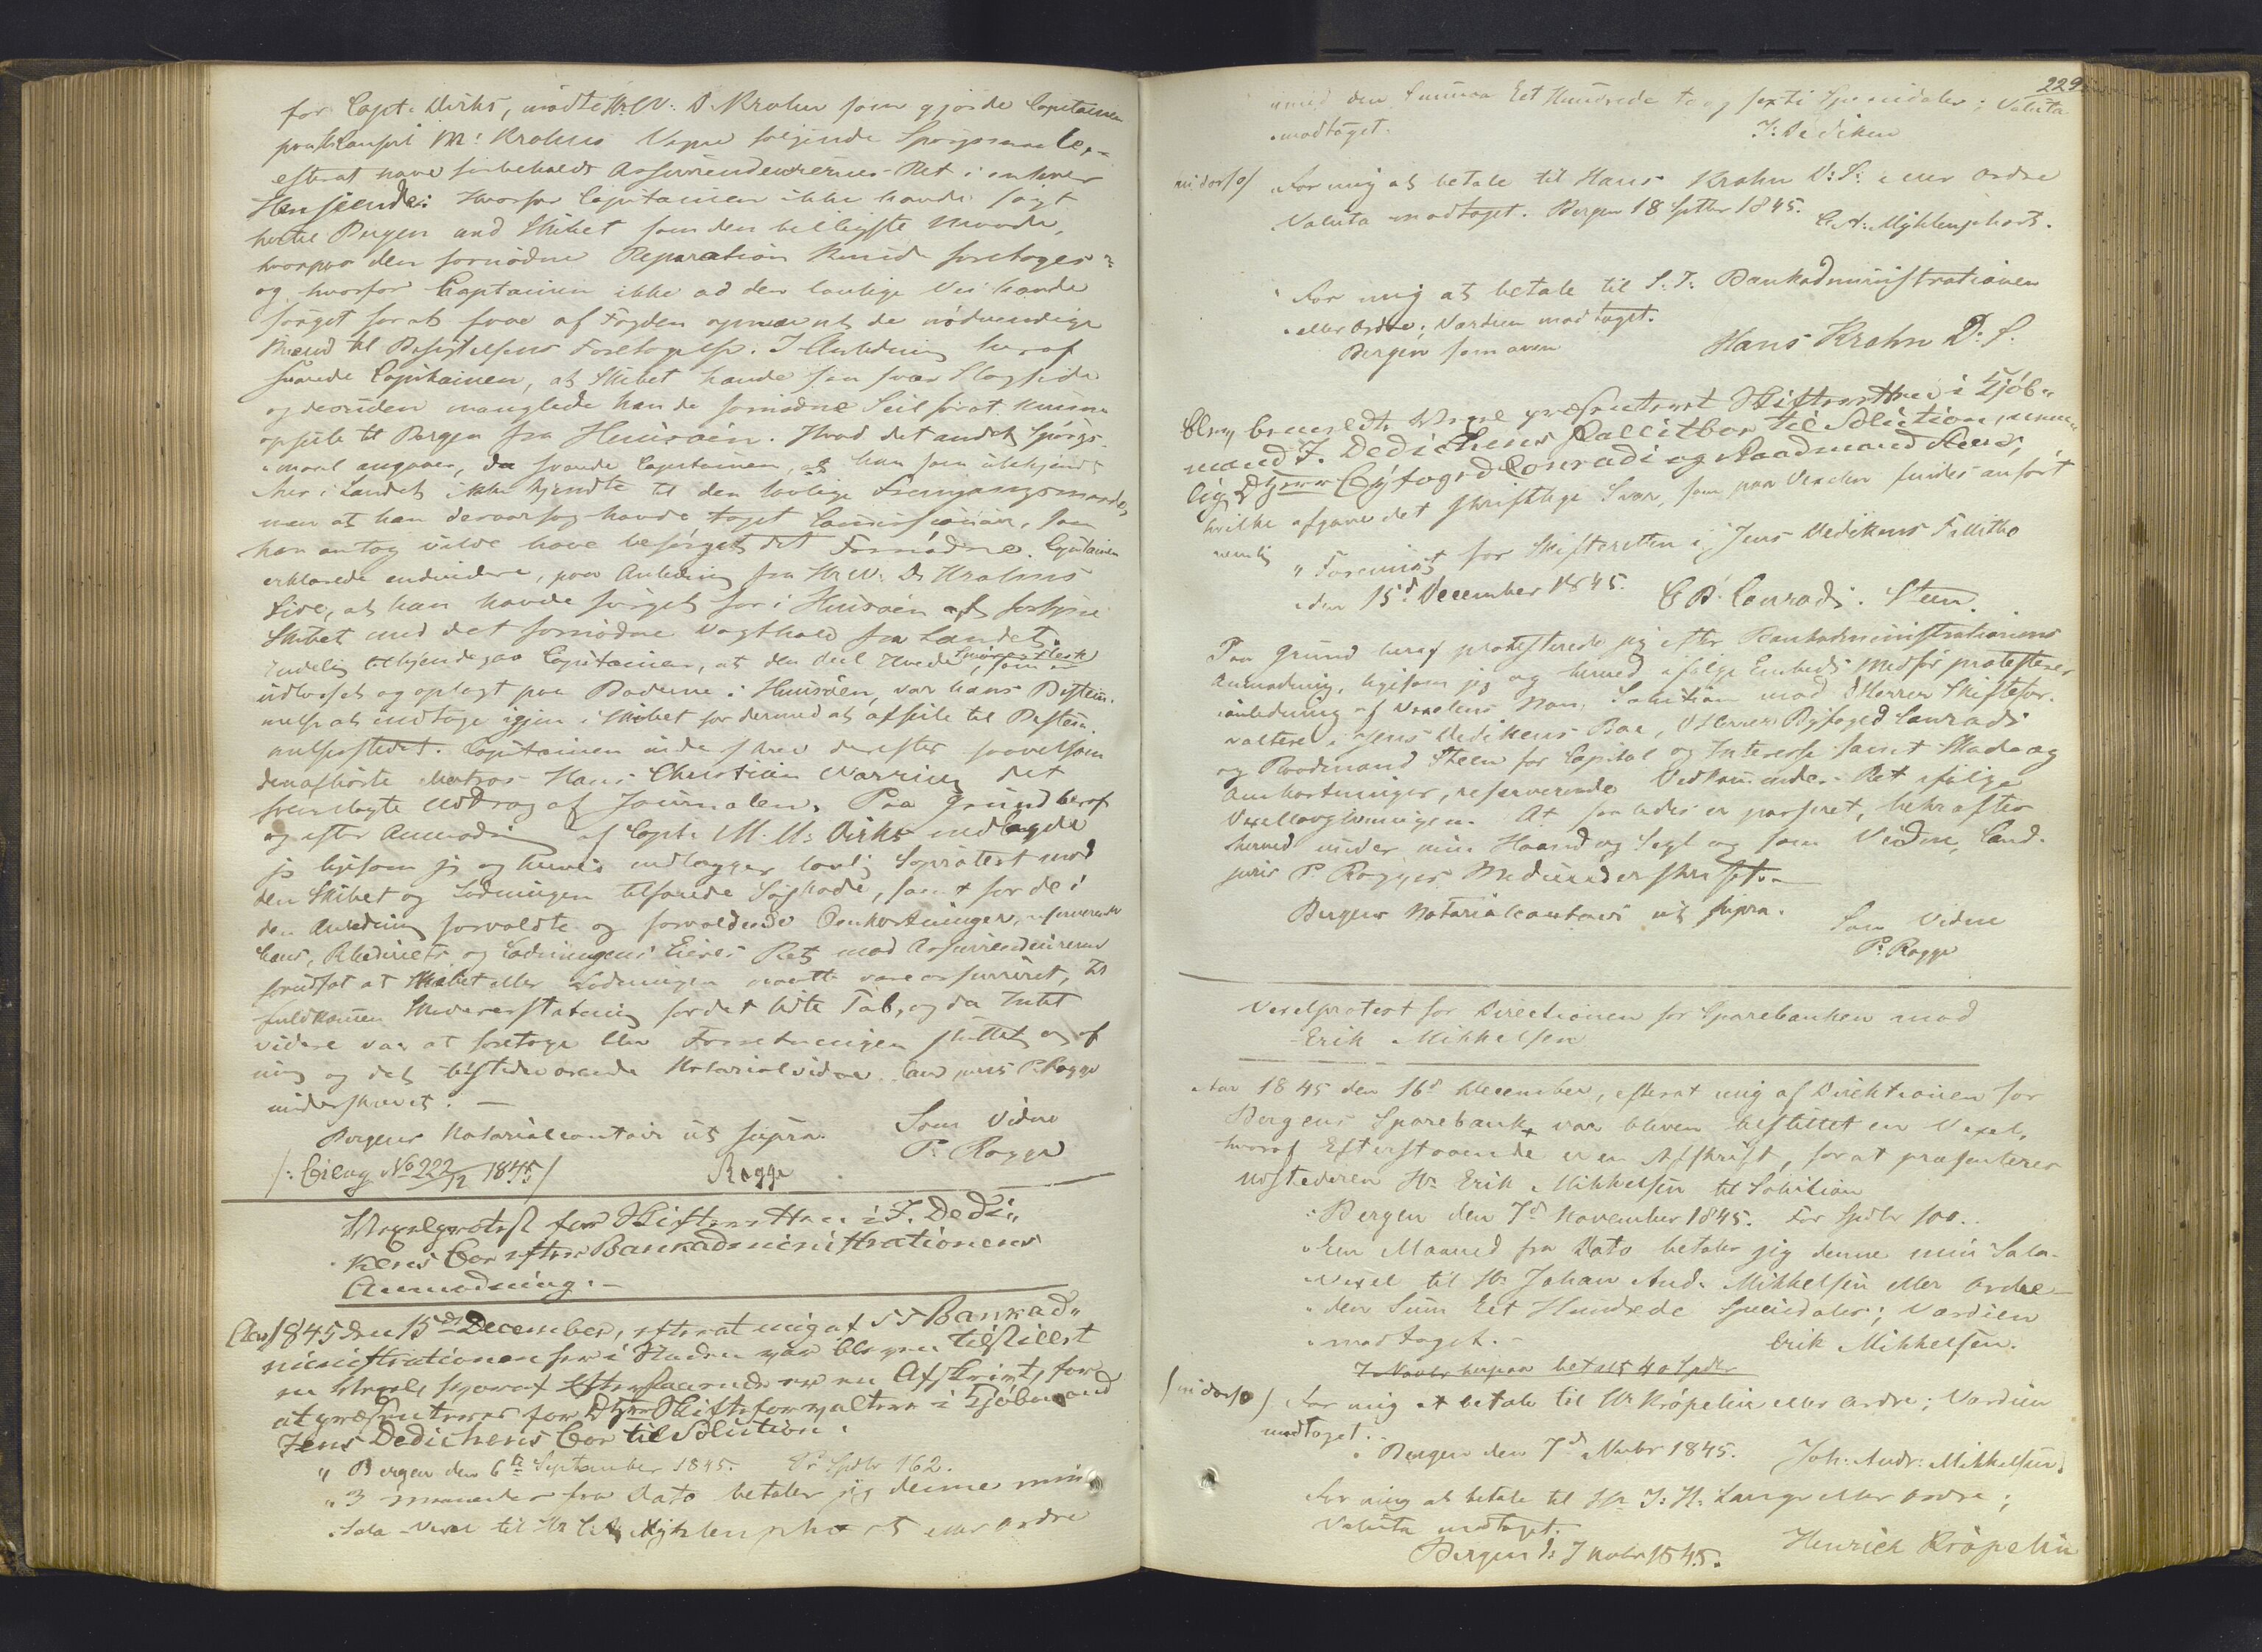 for Capt. Dirks, mødte Hr W. D. Krohn som gjorde Capitainen
paa Consul M: Krohns Vegne følgende Spørgsmaale,
efterat have forbeholdt Assuradeurernes Ret i enhver
Henseende: Hvorfor Capitainen ikke havde søgt
hertil Bergen med Skibet som den billigste Maade,
hvorpaa den fornødne Reparation kunde foretages
og hvorfor Captainen ikke ad den lovlige Vei havde
sørget for at faae af Fogden opnævnt de nødvendige
Mænd til Besigtelsens Foretagelse. I Anledning heraf
svarede Capitainen, at Skibet havde saa svær Slagside
og desuden manglede han de fornødne Seil for at kunne
opseile til Bergen fra Huusøen. Hvad det andet Spørgs-
maal angaaer, da svarede Capitainen, at han som ubekjendt
her i Landet ikke kjendte til den lovlige Fremgangsmaade,
men at han derover havde taget Commissionair, som
han antog vilde have besørget det Fornødne. Capitainen
erklærede endvidere, paa Anledning fra Hr W. D. Krohns
Side, at han havde sørget for i Huusøen at forsyne
Skibet med det fornødne Vagthold fra Landet.
Endelig tilkjendegav Capitainen, at den deel Hvede, Smør og Flesk som er
udlosset og oplagt paa Boderne i Huusøen, var hans Bestem-
melse at indtage igjen i Skibet for dermed at afseile til Bestem-
melsesstedet. Capitainen underskrev derefter saavelsom
den afhørte Matros Hans Christian Warring det
fremlagte Uddrag af Journalen. Paa Grund heraf
og efter Anmodning af Capt. M. M. Dirks indlagde
jeg ligesom jeg og herved indlægger lovlig Søprotest mod
den Skibet og Ladningen tilføiede Søskade, samt for de i
den Anledning forvoldte og forvoldende Omkostninger, reserverende
hans, Rhederiets og Ladningens Eieres Ret mod Assuradeurerne
forudsat at Skibet eller Ladningen maatte være assureret, til
fuldkommen Skadeserstatning for det lidte Tab, og da Intet
videre var at foretage blev Forretningen sluttet og af
mig og det tilstedeværende Notarialvidne Cand juris P. Rogge
underskrevet. —
Bergens Notarialcontoir ut supra. Som Vidne
P. Rogge
/: Bilag No 222/12 1845 / Rogge
Vexelprotest for Skifteretten i J. Dedi„
kens Boe efter Bankadministrationens
Anmodning. —
Aar 1845 den 15de December, efterat mig af S T Bankad„
ministrationen her i Staden var bleven tilstillet
en Vexel, hvoraf Efterstaaende er en Afskrivt, for
at præsenteres for DHrr Skifteforvaltere i Kjøbmand
Jens Dedichens Boe til Solution:
„ Bergen den 6te September 1845. Pr Spdlr 162.
„ 3 maaneder fra Dato betaler jeg denne min
„ Sola-Vexel til Hr C. A. Myhlenphort eller ordre
229.
„ med den Summa Eet Hundrede to og sexti Speciedaler; Valuta
„ modtaget. J: Dediken
in dorso/ For mig at betale til Hans Krohn D: S: eller ordre
Valuta modtaget. Bergen 18 Septbr 1845. C. A: Myhlenphort.
For mig at betale til S. T. Bankadministrationen
„ eller Ordre; Værdien modtaget.
Bergen som oven Hans Krohn D: S.
Blev bemeldte Vexel præsenteret Skifteretten i Kjøb„
mand J. Dedichens Fallitboe til Solution, nemm„
lig DHerrer Byfoged Conradi og Raadmand Steen,
hvilke afgave det skriftlige Svar, som paa Vexelen findes anført
nemlig „ Foreviist for Skifteretten i Jens Dedikens Fallitbo
„ den 15d December 1845. C B Conradi. Steen.
Paa Grund heraf protesterede jeg efter Bankadministrationens
Anmodning, ligesom jeg og herved ifølge Embeds Medfør protesterer
i anledning af Vexelens Non Solution mod DHerrer Skiftefor-
valtere i Jens Dedikens Boe, DHerrer Byfoged Conradi
og Raadmand Steen for Capital og Interesse samt Skade og
Omkostninger, reserverende Vedkommendes Ret ifølge
Vexellovgivningen. At saaledes er passeret, bekræfter
herved under min Haand og Segl og som Vidne, Cand.
juris P Rogges Medunderskrift. —
Bergens Notarialcontoir ut supra. Som Vidne
P: Rogge
Vexelprotest for Directionen for Sparebanken mod
Erik Mikkelsen
Aar 1845 den 16d December, efterat mig af Direktionen for
Bergens Sparebank var bleven tilstillet en Vexel,
hvoraf Efterstaaende er en Afskrift, for at præsenteres
Udstederen Hr Erik Mikkelsen til Solution
„ Bergen den 7d November 1845. For Spdlr 100..
„ Een Maaned fra Dato betaler jeg denne min Sola-
„ Vexel til Hr Johan And. Mikkelsen eller ordre
„ den Sum Eet Hundrede Speciedaler; Værdien
„ modtaget. — Erik Mikkelsen.
7 Novbr herpaa betalt 40 Spdlr
/ in dorso / For mig at betale til Hr Krøpelin eller ordre; Værdien
modtaget.
„ Bergen den 7d Novbr 1845. Joh. Andr: Mikkelsen.
For mig at betale til Hr J: H. Lange eller ordre;
Valuta modtaget.
Bergen d: 7 Novbr 1845. Henrich Krøpelin